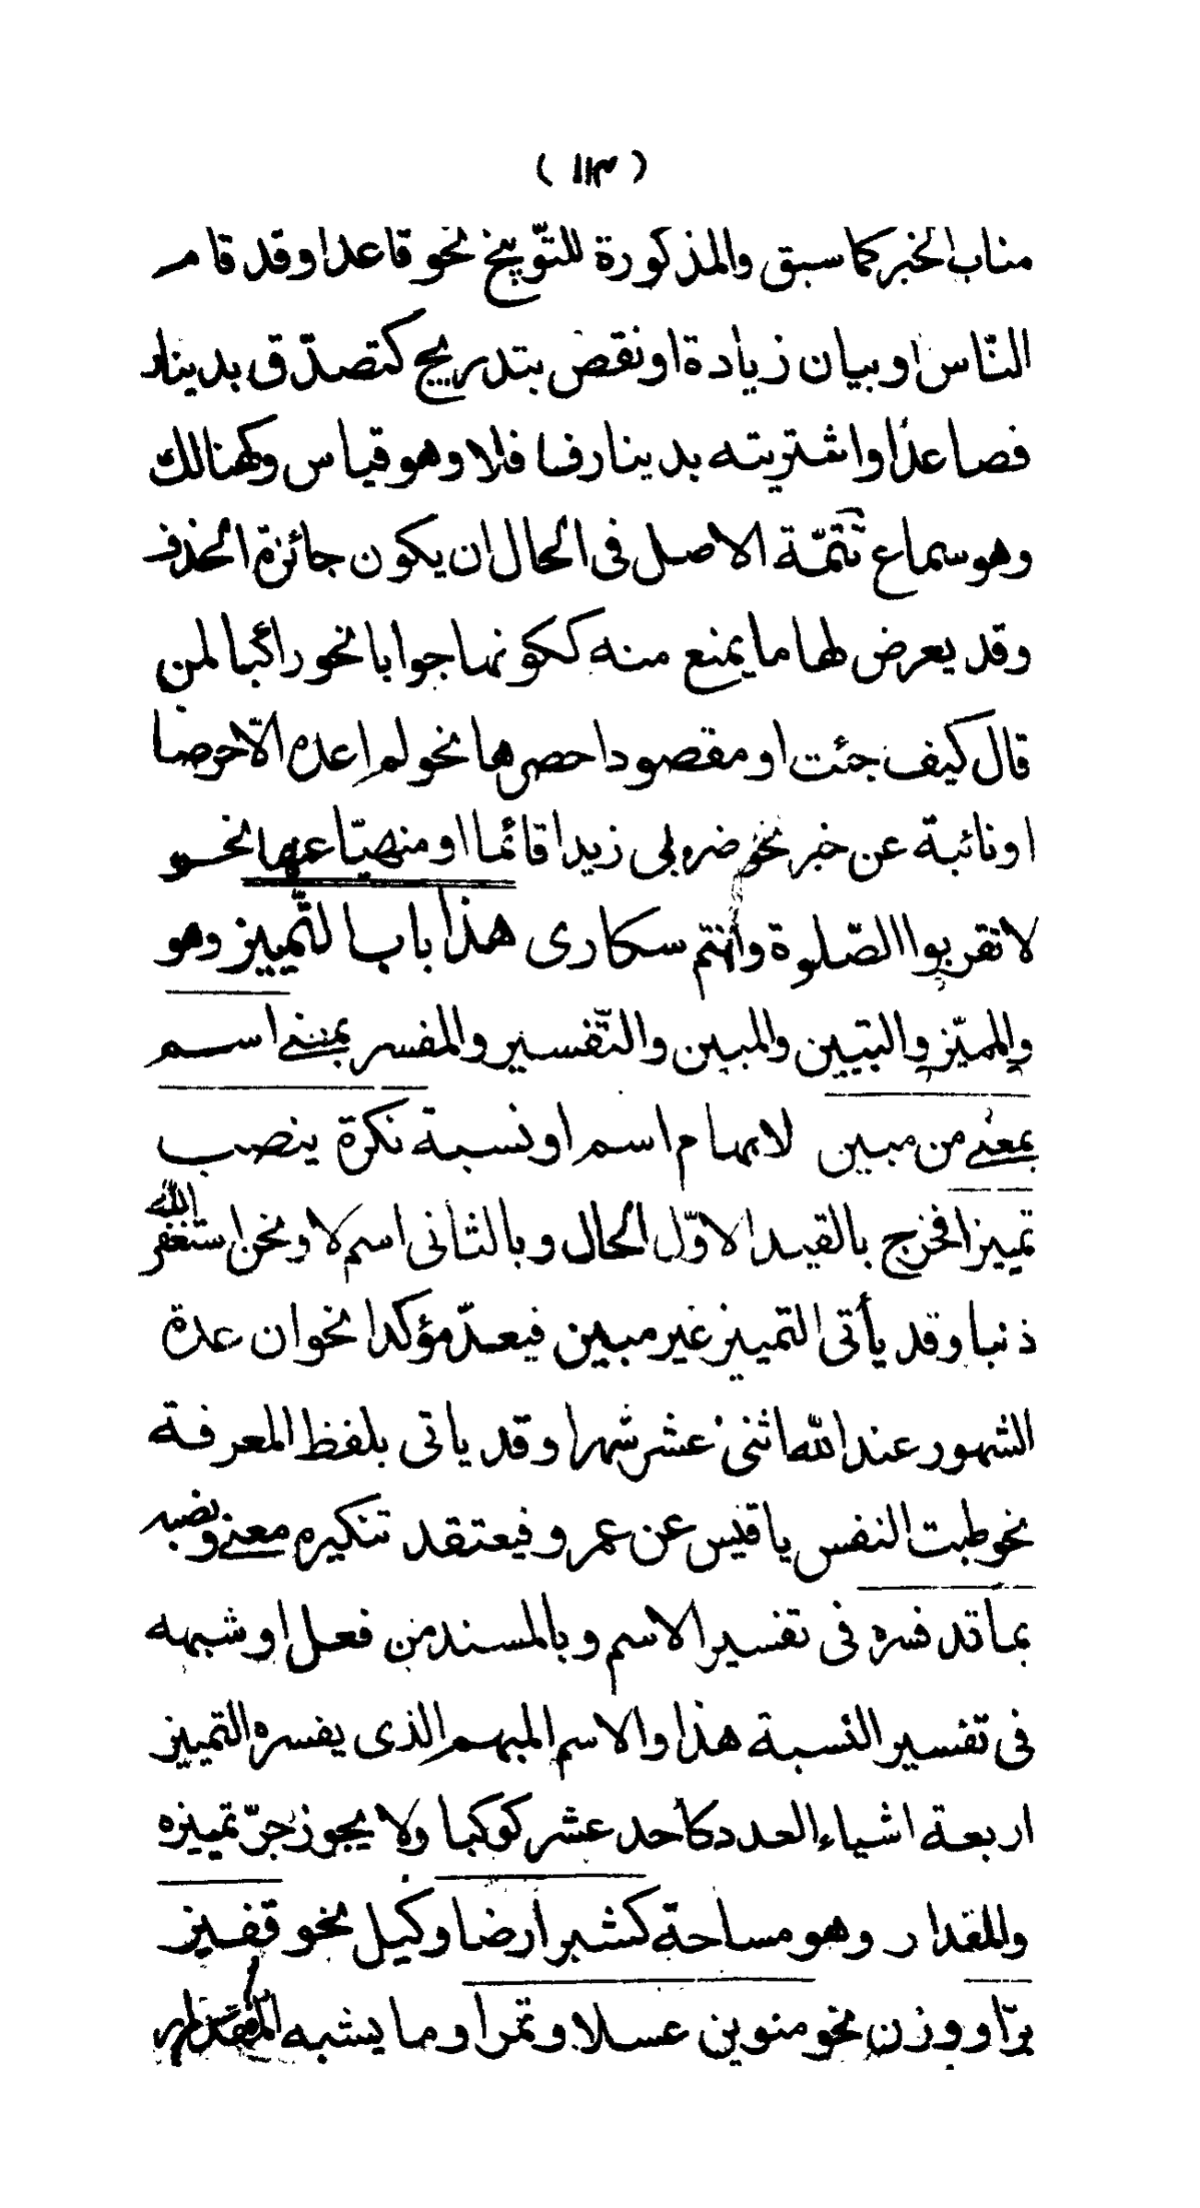 ( ١١٣ )
مناب الخبر كما سبق والمذكورة للتّوبيخ نحو قاعدا وقد قام
النّاس او بيان زيادة او نقص بتدريج كتصدّق بدينار
فصاعدًا واشتريته بدينار فسافلا وهو قياس وكهنا لك
وهو سماع تتمّة الاصل فى الحال ان يكون جائزة الحذف
وقد يعرض لها ما يمنع منه ككونها جوابا نحو راكبا لمن
قال كيف جئت او مقصودا حصرها نحو لم اعده الّا حرصا
او نائبة عن خبر نحو ضربى زيدا قائما او منهيّا عنها نحو
لا تقربوا الصّلوة وانتم سكارى هذا باب التّمييز وهو
والمميّز والتبيين والمبين والتّفسير والمفسر بمعنى اسم
بمعنى من مبين لابهام اسم او نسبة نكرة ينصب
تمييزا فخرج بالقيد الاوّل الحال وبالثانى اسم لا ونحو استغفر الله
ذنبا وقد يأتى التمييز غير مبين فيعدّ مؤكدا نحو ان عدة
الشهور عند الله اثنى عشر شهرا وقد ياتى بلفظ المعرفة
نحو طبت النفس يا قيس عن عمرو فيعتقد تنكيره معنى ونصبه
بما قد فسره فى تفسير الاسم وبالمسند من فعل او شبهه
فى تفسير النسبة هذا والاسم المبهم الذى يفسره التمييز
اربعة اشياء العدد كأحد عشر كوكبا ولا يجوز جرّ تمييزه
والمقدار وهو مساحة كشبر أرضا وكيل نحو قفيز
برّا ووزن نحو منوين عسلا وتمرا وما يشبه المقدار